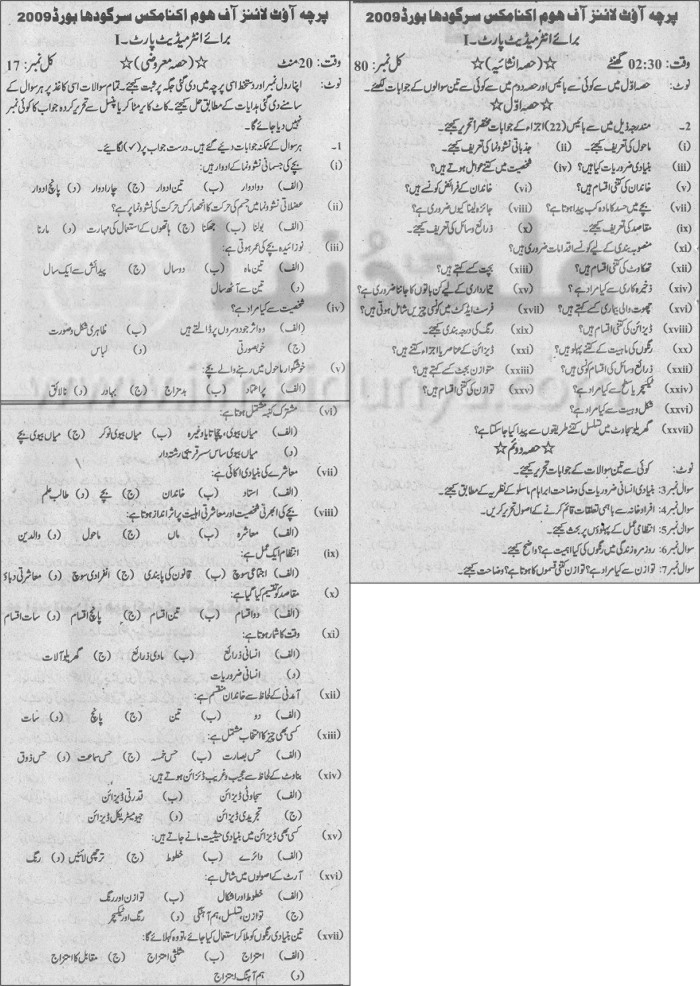 پرچہ آؤٹ لائنز آف ہوم اکنامکس سرگودھا بورڈ 2009
برائے انٹرمیڈیٹ پارٹ ۔ I
وقت: 20 منٹ ☆(حصہ معروضی)☆ کل نمبر: 17
نوٹ: اپنا رول نمبر اور دستخط اسی پرچہ میں دی گئی جگہ پر ثبت کیجئے۔ تمام سوالات اسی کاغذ پر ہر سوال کے
سامنے دی گئی ہدایات کے مطابق حل کیجئے۔ کاٹ کر یا مٹا کر یا پنسل سے تحریر کردہ جواب کا کوئی نمبر
نہیں دیا جائے گا۔
1۔ ہر سوال کے ممکنہ جوابات دیئے گئے ہیں۔ درست جواب پر (✓) لگائیے۔
(i) بچے کی جسمانی نشوونما کے ادوار ہیں:
(الف) دو ادوار (ب) تین ادوار (ج) چار ادوار (د) پانچ ادوار
(ii) عضلاتی نشوونما میں جسم کی حرکت کا انحصار کس حرکت کی نشوونما پر ہے؟
(الف) بولنا (ب) جھکنا (ج) ہاتھوں کے استعمال کی مہارت (د) مارنا
(iii) نوزائیدہ بچے کی عمر ہوتی ہے:
(الف) تین ماہ (ب) دو سال (ج) پیدائش سے ایک سال
(د) تین سے آٹھ سال
(iv) شخصیت سے کیا مراد ہے؟
(الف) وہ اثر جو دوسروں پر ڈالتے ہیں (ب) ظاہری شکل و صورت
(ج) خوبصورتی (د) لباس
(v) خوشگوار ماحول میں رہنے والے بچے:
(الف) پراعتماد (ب) بدمزاج (ج) بہادر (د) نالائق
(vi) مشترک کنبہ مشتمل ہوتا ہے:
(الف) میاں بیوی، چچا تایا وغیرہ (ب) میاں بیوی نوکر (ج) میاں بیوی بچے
(د) میاں بیوی ساس سسر قریبی رشتہ دار
(vii) معاشرے کی بنیادی اکائی ہے:
(الف) استاد (ب) خاندان (ج) بچے (د) طالب علم
(viii) بچے کی ابھرتی شخصیت اور معاشرتی اہلیت پر اثر انداز ہوتا ہے:
(الف) معاشرہ (ب) ماں (ج) ماحول (د) والدین
(ix) انتظام ایک عمل ہے:
(الف) اجتماعی سوچ (ب) قانون کی پابندی (ج) انفرادی سوچ (د) معاشرتی دباؤ
(x) مقاصد کو تقسیم کیا گیا ہے:
(الف) دو اقسام (ب) تین اقسام (ج) پانچ اقسام (د) سات اقسام
(xi) وقت کا شمار ہوتا ہے:
(الف) انسانی ذرائع (ب) مادی ذرائع (ج) گھریلو آلات
(د) انسانی ضروریات
(xii) آمدنی کے لحاظ سے خاندان منقسم ہے:
(الف) دو (ب) تین (ج) پانچ (د) سات
(xiii) کسی بھی چیز کا انتخاب مشتمل ہے:
(الف) حس بصارت (ب) حس خمسہ (ج) حس سماعت (د) حس ذوق
(xiv) بناوٹ کے لحاظ سے عجیب و غریب ڈیزائن ہوتے ہیں:
(الف) سجاوٹی ڈیزائن (ب) قدرتی ڈیزائن
(ج) تجریدی ڈیزائن (د) جیومیٹریکل ڈیزائن
(xv) کسی بھی ڈیزائن میں بنیادی حیثیت مانے جاتے ہیں:
(الف) دائرے (ب) خطوط (ج) ترچھی لائنیں (د) رنگ
(xvi) آرٹ کے اصولوں میں شامل ہے:
(الف) خطوط اور اشکال (ب) توازن اور رنگ
(ج) توازن، تسلسل، ہم آہنگی (د) رنگ اور ٹیکسچر
(xvii) تین بنیادی رنگوں کو ملا کر استعمال کیا جائے، تو وہ کہلائے گا:
(الف) امتزاج (ب) مثلثی امتزاج (ج) مقابل کا امتزاج
(د) ہم آہنگ امتزاج
پرچہ آؤٹ لائنز آف ہوم اکنامکس سرگودھا بورڈ 2009
برائے انٹرمیڈیٹ پارٹ ۔ I
وقت: 02:30 گھنٹے ☆(حصہ انشائیہ)☆ کل نمبر: 80
نوٹ: حصہ اول میں سے کوئی سے بائیس اور حصہ دوم میں سے کوئی سے تین سوالوں کے جوابات لکھئے۔
☆حصہ اول☆
2۔ مندرجہ ذیل میں سے بائیس (22) اجزاء کے جوابات مختصراً تحریر کیجئے۔
(i) ماحول کی تعریف کیجئے۔ (ii) جذباتی نشوونما کی تعریف کیجئے۔
(iii) بنیادی ضروریات کیا ہیں؟ (iv) شخصیت میں کتنے عوامل ہوتے ہیں؟
(v) خاندان کی کتنی اقسام ہیں؟ (vi) خاندان کے فرائض کونسے ہیں؟
(vii) بچے میں حسد کا مادہ کب پیدا ہوتا ہے؟ (viii) جائزہ لینا کیوں ضروری ہے؟
(ix) مقاصد کی تعریف کیجئے۔ (x) ذرائع وسائل کی تعریف کیجئے۔
(xi) منصوبہ بندی کے لیے کونسے اقدامات ضروری ہیں؟
(xii) تھکاوٹ کی کتنی اقسام ہیں؟ (xiii) بچت کسے کہتے ہیں؟
(xiv) ذخیرہ کاری سے کیا مراد ہے؟ (xv) تیمارداری کے لیے کن باتوں کا جاننا ضروری ہے؟
(xvi) چھوت والی بیماری کسے کہتے ہیں؟ (xvii) فرسٹ ایڈ کٹ میں کونسی چیزیں شامل ہوتی ہیں؟
(xviii) ڈیزائن کی کتنی اقسام ہیں؟ (xix) رنگ کی درجہ بندی کیجئے۔
(xx) رنگوں کی ماہیت کے کتنے پہلو ہیں؟ (xxi) ڈیزائن کے عناصر یا اجزاء کونسے ہیں؟
(xxii) ذرائع وسائل کی اقسام کونسی ہیں؟ (xxiii) متوازن بجٹ کسے کہتے ہیں؟
(xxiv) ٹیکسچر یا سطح سے کیا مراد ہے؟ (xxv) توازن کی کتنی اقسام ہیں؟
(xxvi) شکل و ہیئت سے کیا مراد ہے؟
(xxvii) گھریلو سجاوٹ میں تسلسل کتنے طریقوں سے پیدا کیا جا سکتا ہے؟
☆حصہ دوئم☆
نوٹ: کوئی سے تین سوالات کے جوابات تحریر کیجئے۔
سوال نمبر 3: بنیادی انسانی ضروریات کی وضاحت ابراہام ماسلو کے نظریے کے مطابق کیجئے۔
سوال نمبر 4: افراد خانہ سے باہمی تعلقات قائم کرنے کے اصول تحریر کریں۔
سوال نمبر 5: انتظامی عمل کے پہلوؤں پر بحث کیجئے۔
سوال نمبر 6: روزمرہ زندگی میں رنگوں کی کیا اہمیت ہے؟ واضح کیجئے۔
سوال نمبر 7: توازن سے کیا مراد ہے؟ توازن کتنی قسموں کا ہوتا ہے؟ وضاحت کیجئے۔